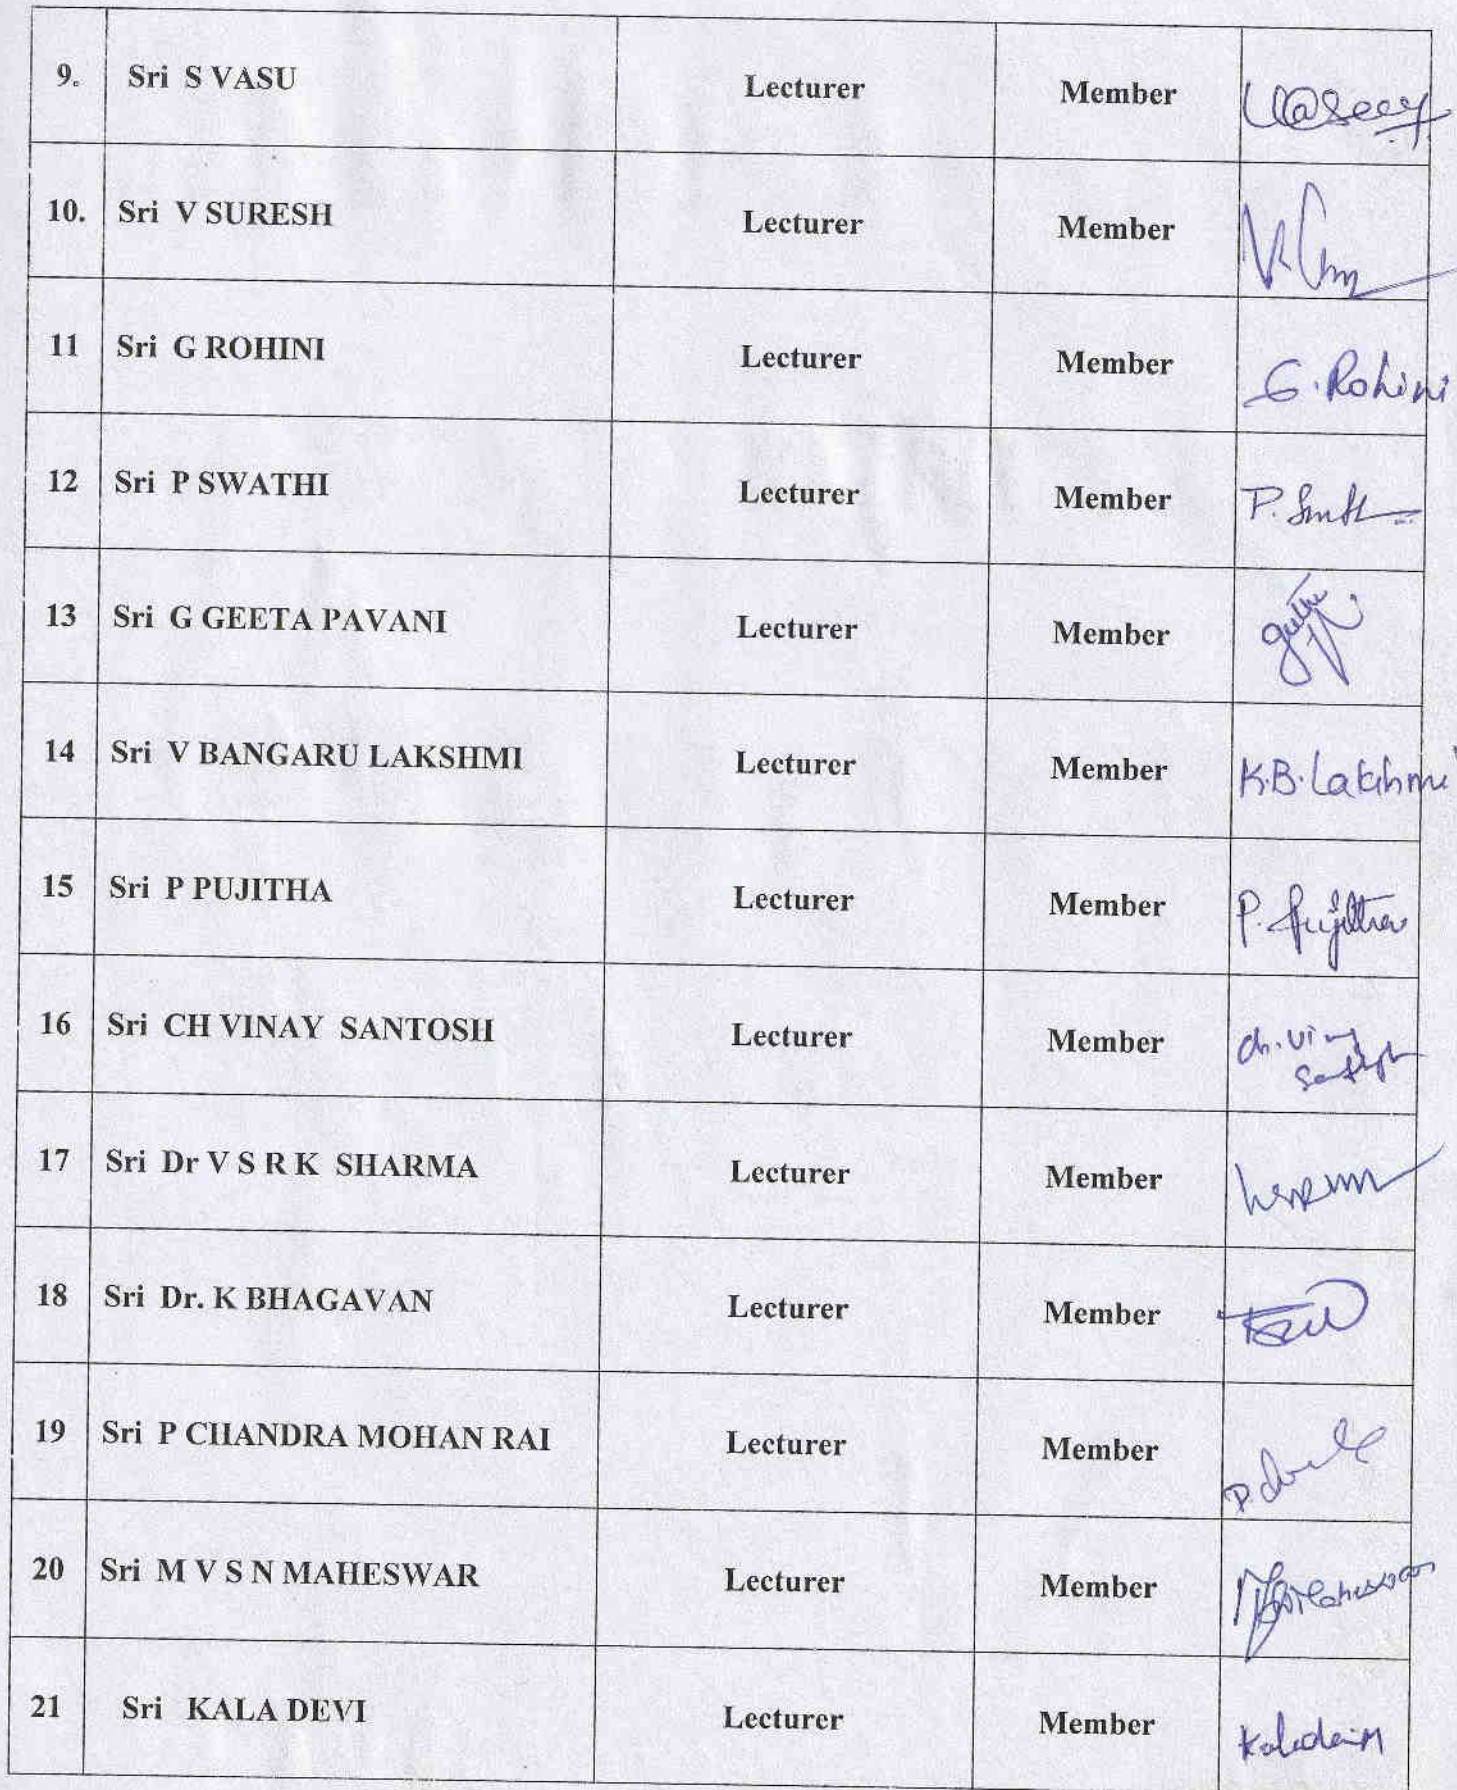 9. Sri S VASU Lecturer Member
10. Sri V SURESH Lecturer Member
11 Sri G ROHINI Lecturer Member G. Rohini
12 Sri P SWATHI Lecturer Member P.
13 Sri G GEETA PAVANI Lecturer Member
14 Sri V BANGARU LAKSHMI Lecturer Member K.B. Lakshmi
15 Sri P PUJITHA Lecturer Member P. Pujitha
16 Sri CH VINAY SANTOSH Lecturer Member Ch.
17 Sri Dr V S R K SHARMA Lecturer Member
18 Sri Dr. K BHAGAVAN Lecturer Member
19 Sri P CHANDRA MOHAN RAI Lecturer Member P.
20 Sri M V S N MAHESWAR Lecturer Member
21 Sri KALA DEVI Lecturer Member